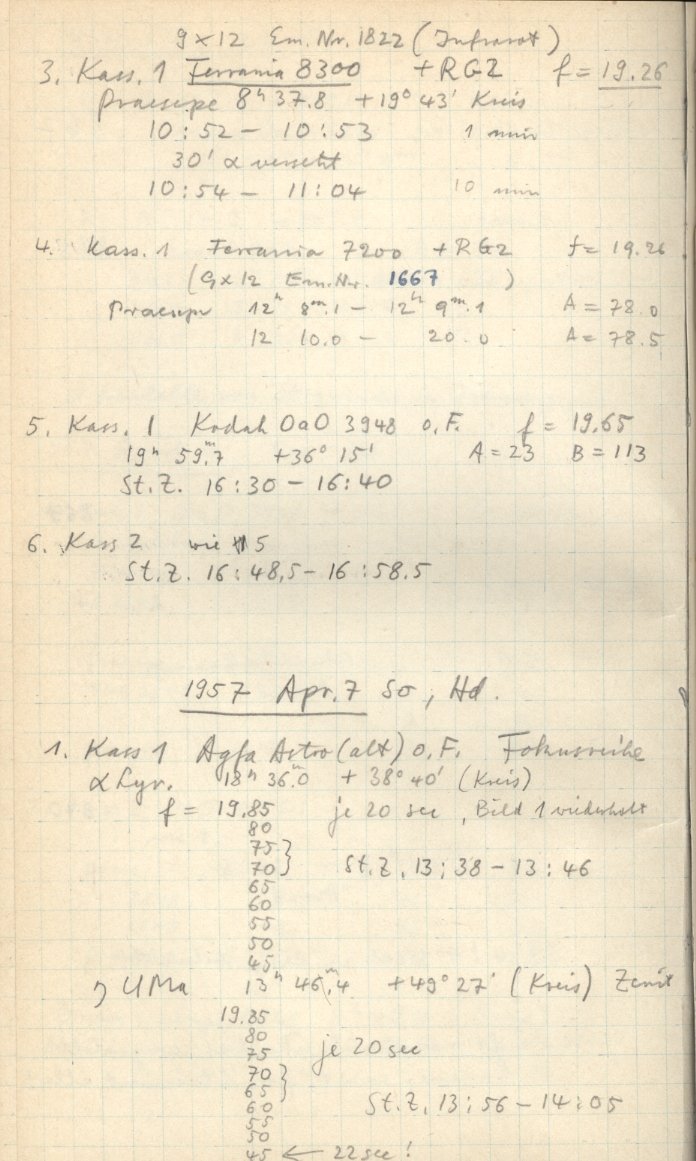 9x12 Em. Nr. 1822 (Infrarot)
3. Kass. 1 Ferrania 8300 + RG2 f = 19.26
Praesepe 8ʰ 37.8 +19° 43' Kreis
10:52 – 10:53 1 min
30' α versetzt
10:54 – 11:04 10 min
4. Kass. 1 Ferrania 7200 + RG2 f = 19.26
(9x12 Em. Nr. 1667)
Praesepe 12ʰ 8ᵐ.1 – 12ʰ 9ᵐ.1 A = 78.0
12 10.0 – 20.0 A = 78.5
5. Kass. 1 Kodak OaO 3948 o.F. f = 19.65
19ʰ 59ᵐ.7 +36° 15' A = 23 B = 113
St.Z. 16:30 – 16:40
6. Kass 2 wie 5
St.Z. 16:48,5 – 16:58.5
1957 Apr. 7 So, Hd.
1. Kass 1 Agfa Astro (alt) o.F. Fokusreihe
α Lyr. 18ʰ 36ᵐ.0 + 38° 40' (Kreis)
f = 19.85 je 20 sec, Bild 1 wiederholt
80
75
70 } St.Z. 13:38 – 13:46
65
60
55
50
45
η UMa 13ʰ 46ᵐ.4 +49° 27' (Kreis) Zenit
19.85
80
75 je 20 sec
70
65 }
60 St.Z. 13:56 – 14:05
55
50
45 ← 22 sec!